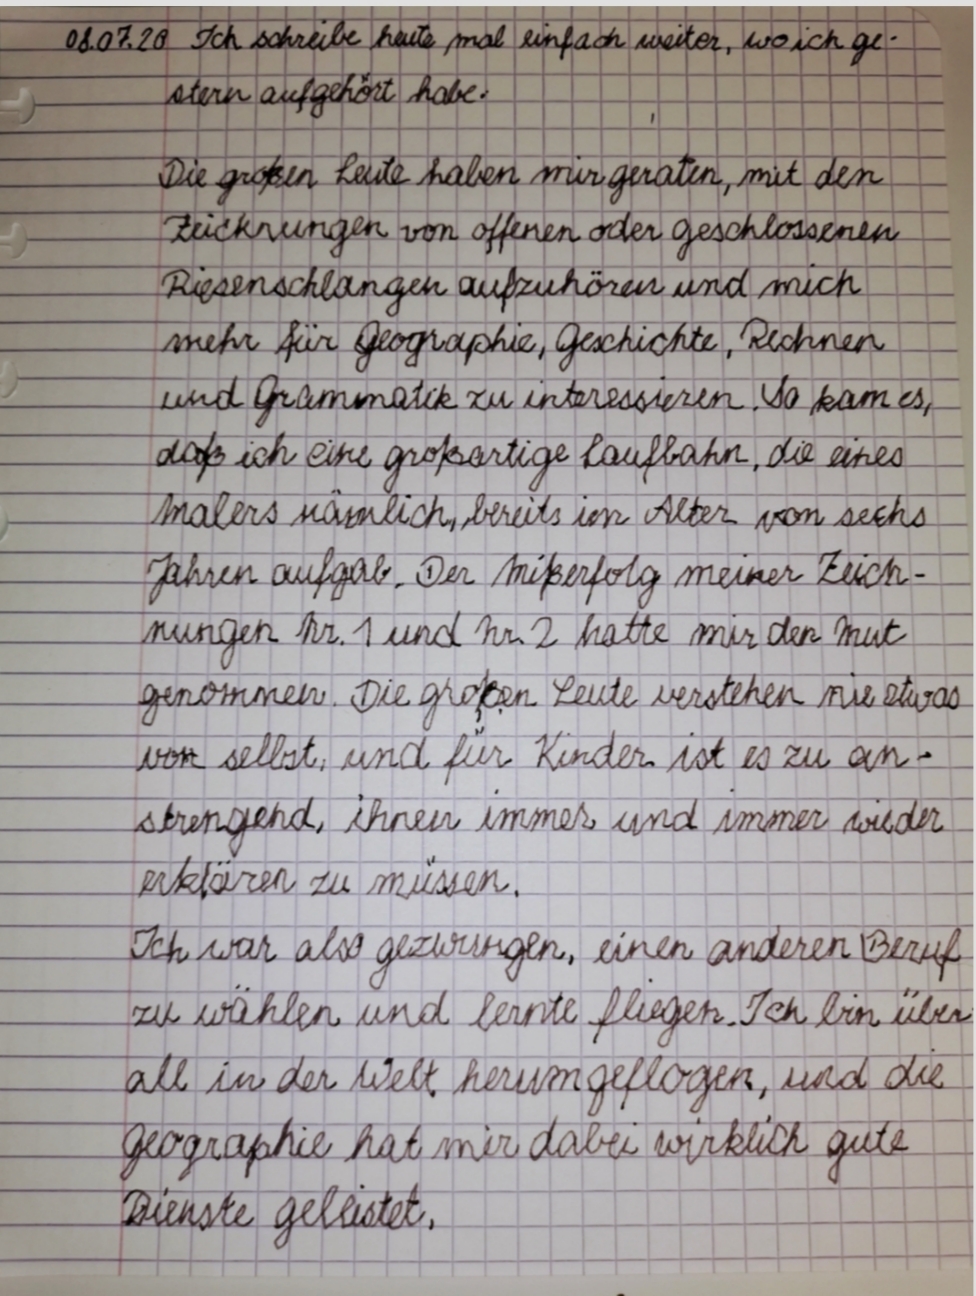 08.07.20 Ich schreibe heute mal einfach weiter, wo ich ge-
stern aufgehört habe.
Die großen Leute haben mir geraten, mit den
Zeichnungen von offenen oder geschlossenen
Riesenschlangen aufzuhören und mich
mehr für Geographie, Geschichte, Rechnen
und Grammatik zu interessieren. So kam es,
daß ich eine großartige Laufbahn, die eines
Malers nämlich, bereits im Alter von sechs
Jahren aufgab. Der Mißerfolg meiner Zeich-
nungen Nr. 1 und Nr. 2 hatte mir den Mut
genommen. Die großen Leute verstehen nie etwas
von selbst, und für Kinder ist es zu an-
strengend, ihnen immer und immer wieder
erklären zu müssen.
Ich war also gezwungen, einen anderen Beruf
zu wählen und lernte fliegen. Ich bin über
all in der Welt herumgeflogen, und die
Geographie hat mir dabei wirklich gute
Dienste geleistet.